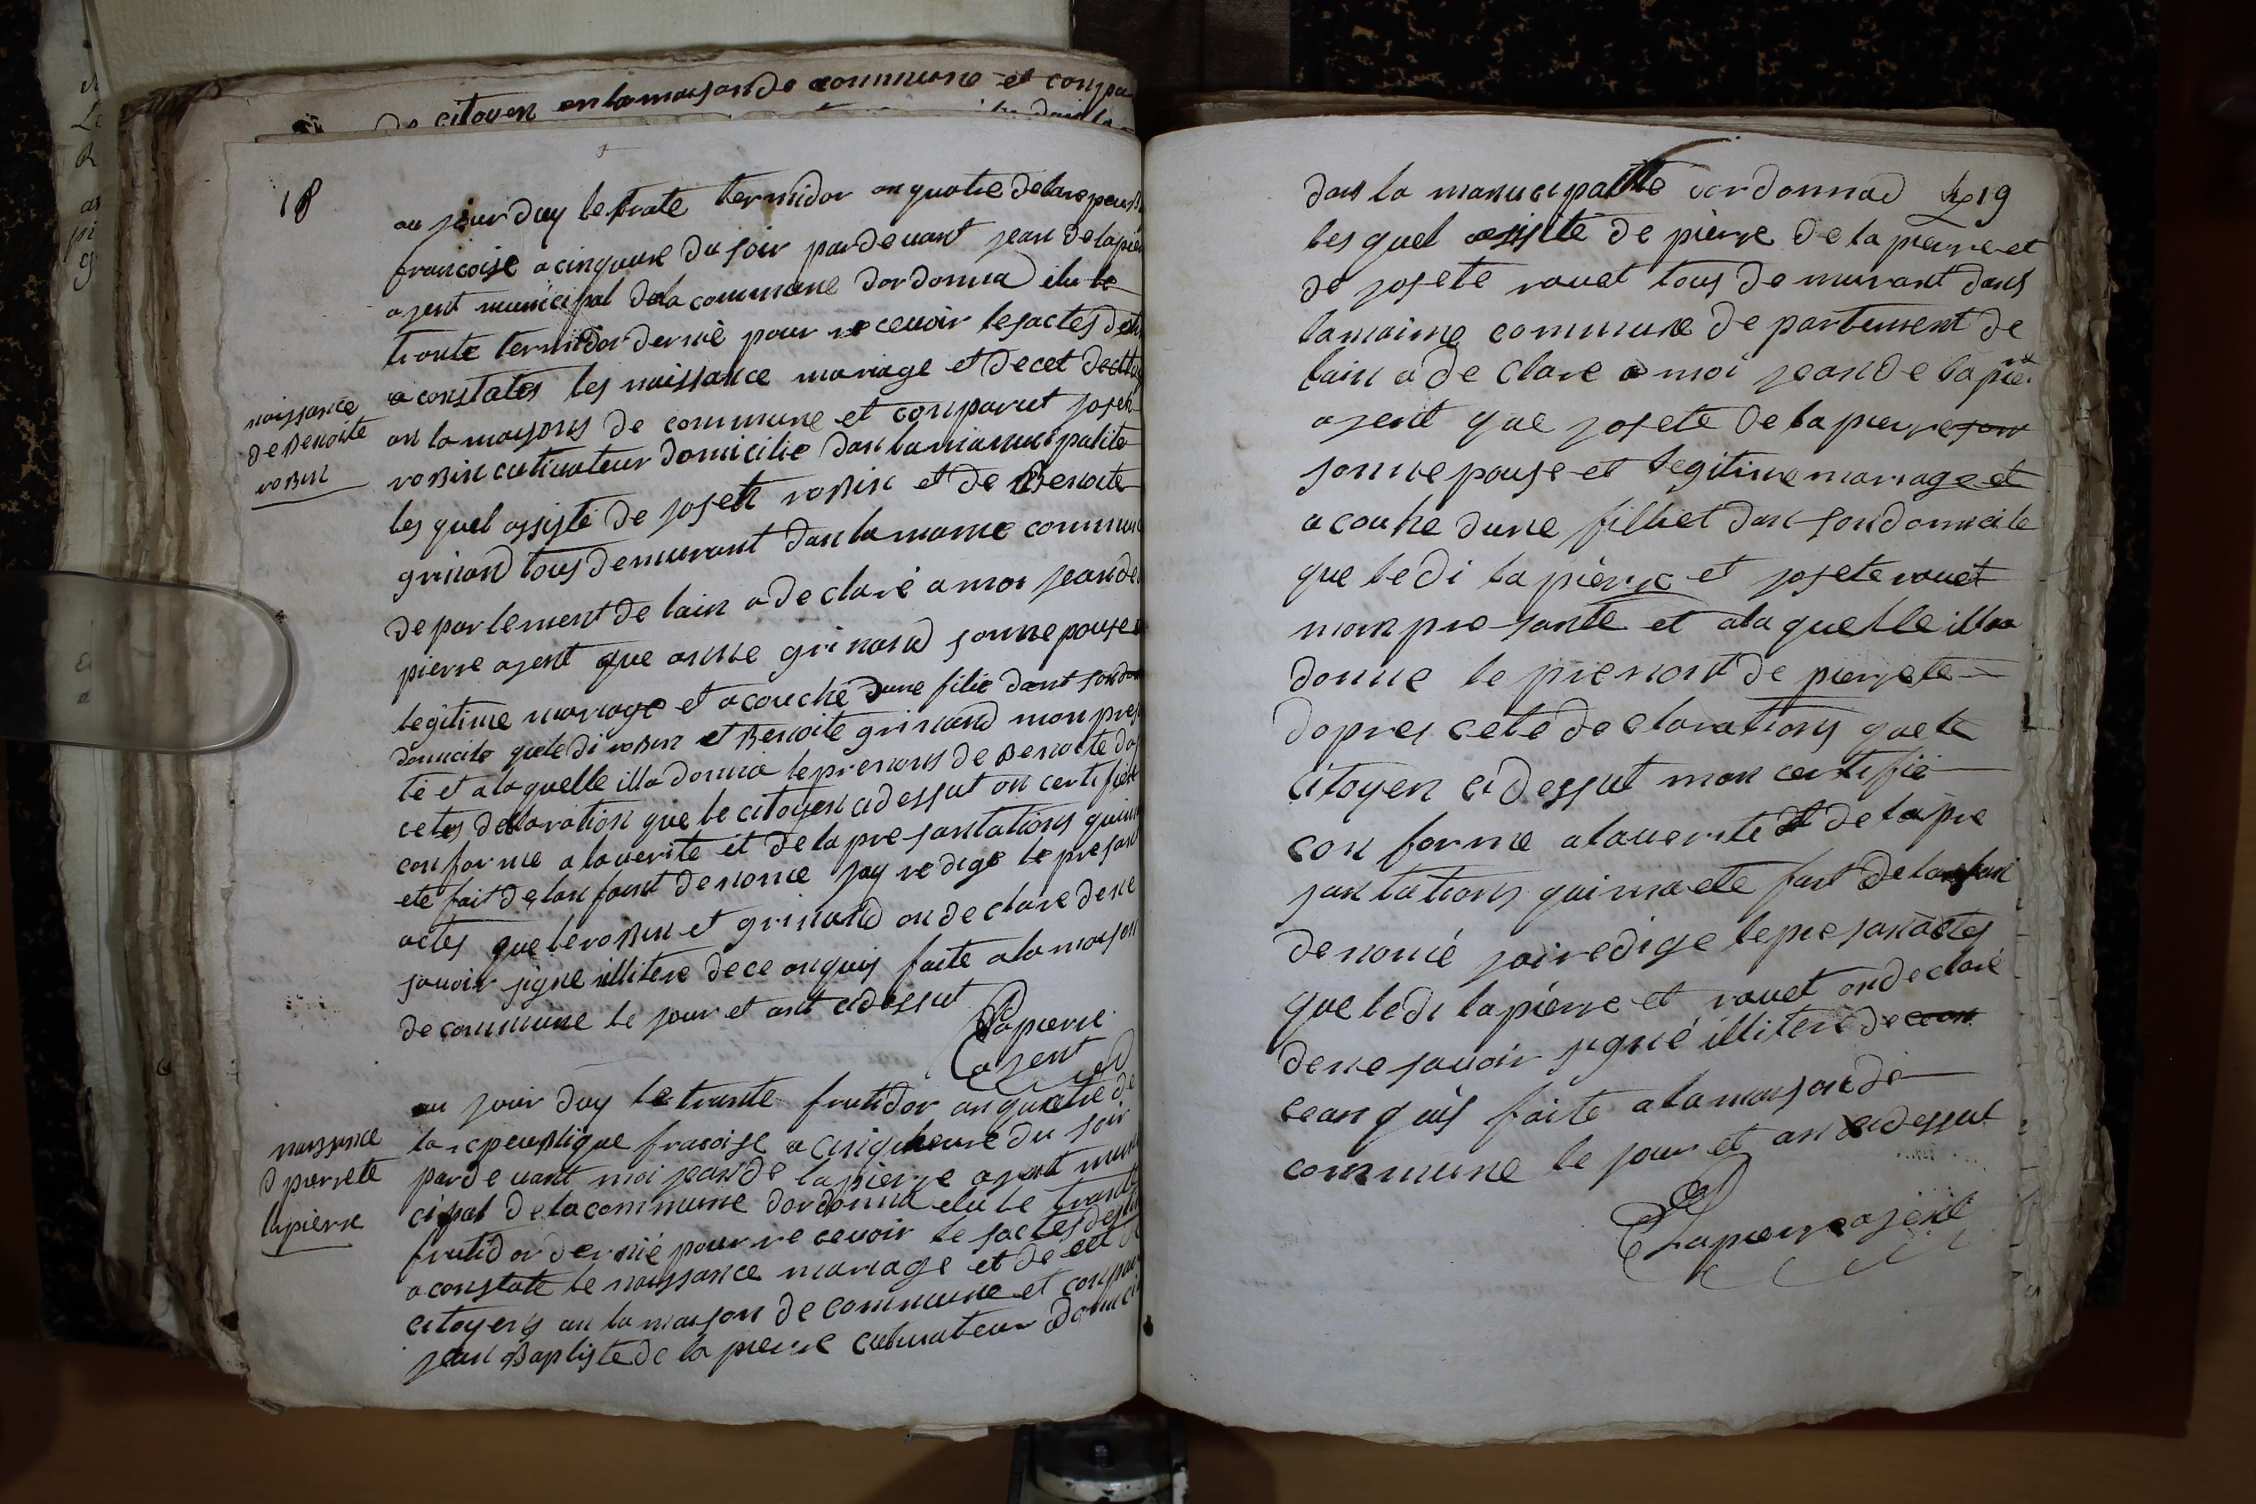 de citoyen en la maison de commune et conpa
18
au jour duy le trate termidor an quatre de la repeubl
francoise a cinqueure du soir par devant jean de lapie
ajent municipal de la commune dordonna elu le
trante termidor dernié pour re cevoir lesactes des
a constates les naissance mariage et decet de
an la maisons de commune et conparut joseh
naissance
de Benoite
roBin
roBin cultivateur domicilie dan la manucipalite
les quel assiste de joseth roBin et de Benoite
grinand tous demeurant dan la maime commun
de partement de lain a de claré a moi jean de
pierre ajent que anne grinand sonnepouse
legitime mariage et a couché dune filie dant son
domicile quele di roBin et Benoite grinand mon pres
té et a laquelle illa donna le prenons de Benoite da
cetes declaration que le citoyen ci dessut on certifié
conforme a laverité et de la pre santations quim
ete fait de lan fant denomé jay redigé le presant
actes que le roBin et grinand on de claré de ne
savoir signe illitere de ce anquis faite a la maison
de commune le jour et ant cidessut
Lapierre
ajent
au jour duy le trante frutidor an quatre de
la repeublique fracoise a cinqheure du soir
naissance
d pierrete
lapierre
par de vant moi jean de lapierre ajent mun
cipal de la commune dordonna elu le trante
frutidor dernié pour re cevoir le sactes des
a constate le naissance mariage et de cet d
citoyens au la maison de commune et conpar
jean Baptiste de la pierre cultivateur domici
dan la manucipalité dordonnad 19
les quel assisté de pierre de la pierre et
de josete rouet tous de meurant dans
la maime commune de partement de
lain a de clare a moi jean de la pier
ajent que josete de la pierre son
sonnepouse et legitime mariage et
a couhe dune filliet dan son domicile
que le di lapierre et josete rouet
mon pre sante et a la quelle illa
donne le prenont de pierrete
dapres cete de clarations que le
citoyen ci dessut mon certifié
con forme a la verité et de la pre
santations qui ma ete fait de lanfan
denomé jai redige le pre san actes
que le di lapierre et rouet on de claré
de ne savoir signé illitere de ce an
ceanquis faite a la maison de
commune le jour et an cidessut
Lapierre ajent